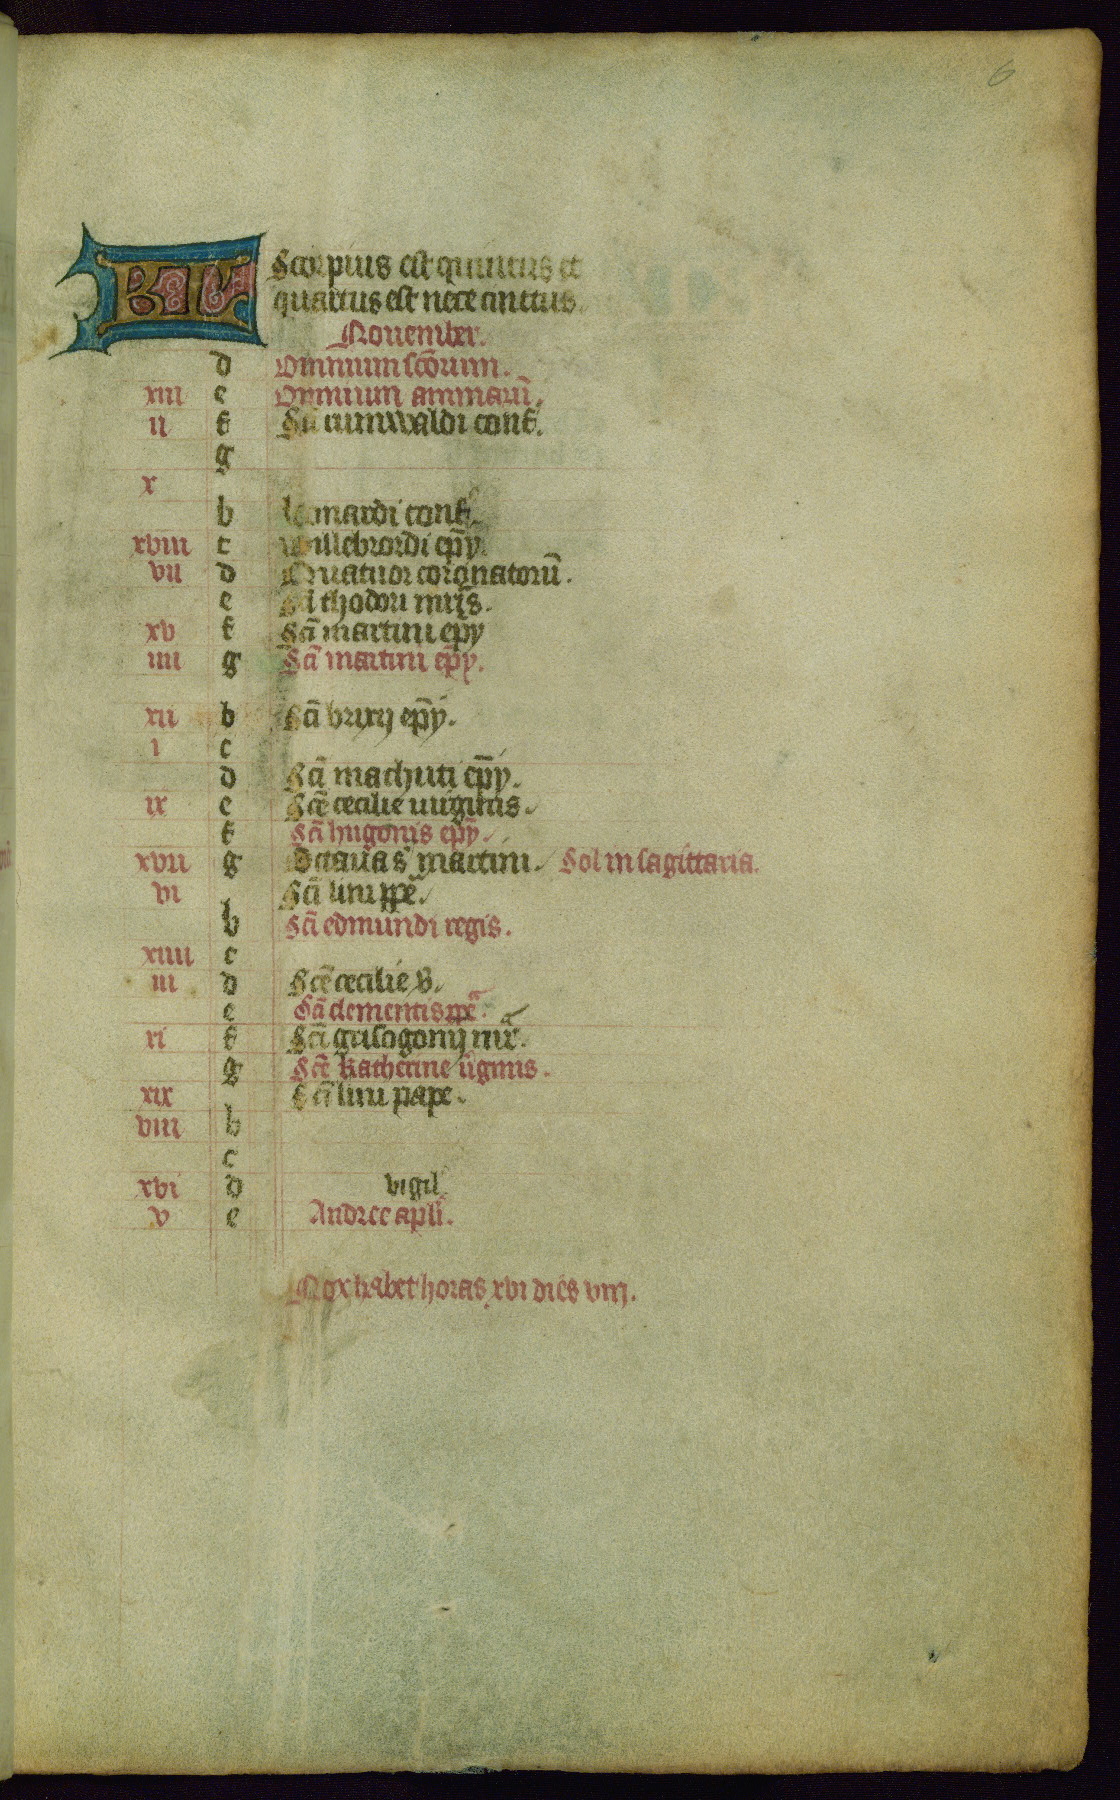 6
KL Scorpius est quintus et
quartus est nece cinctus.
Nouember.
d Omnium scōrum.
xiii e Omnium animarū.
ii f Scī wnwaldi conf.
g
x
b leonardi conf.
xviii c willebrordi ep̄y.
vii d Quatuor coronatorū.
e Scī thodori mr̄is.
xv f Scī martini epy
iiii g Scī martini ep̄y.
xii b Scī brixij ep̄y.
i c
d Scī machuti ep̄y.
ix e Scē cecilie uirginis.
f Scī hugonis ep̄y.
xvii g Octaūa s martini. Sol in sagittaria.
vi Scī lini pp̄e.
b Scī edmundi regis.
xiiii c
iii d Scē cecilie v.
e Scī clementis pp̄e.
xi f Scī grisogonij mr̄.
g Scē katherine ūginis.
xix Scī lini pape.
viii b
c
xvi d vigil
v e Andree apl̄i.
Nox habet horas xvi dies viij.